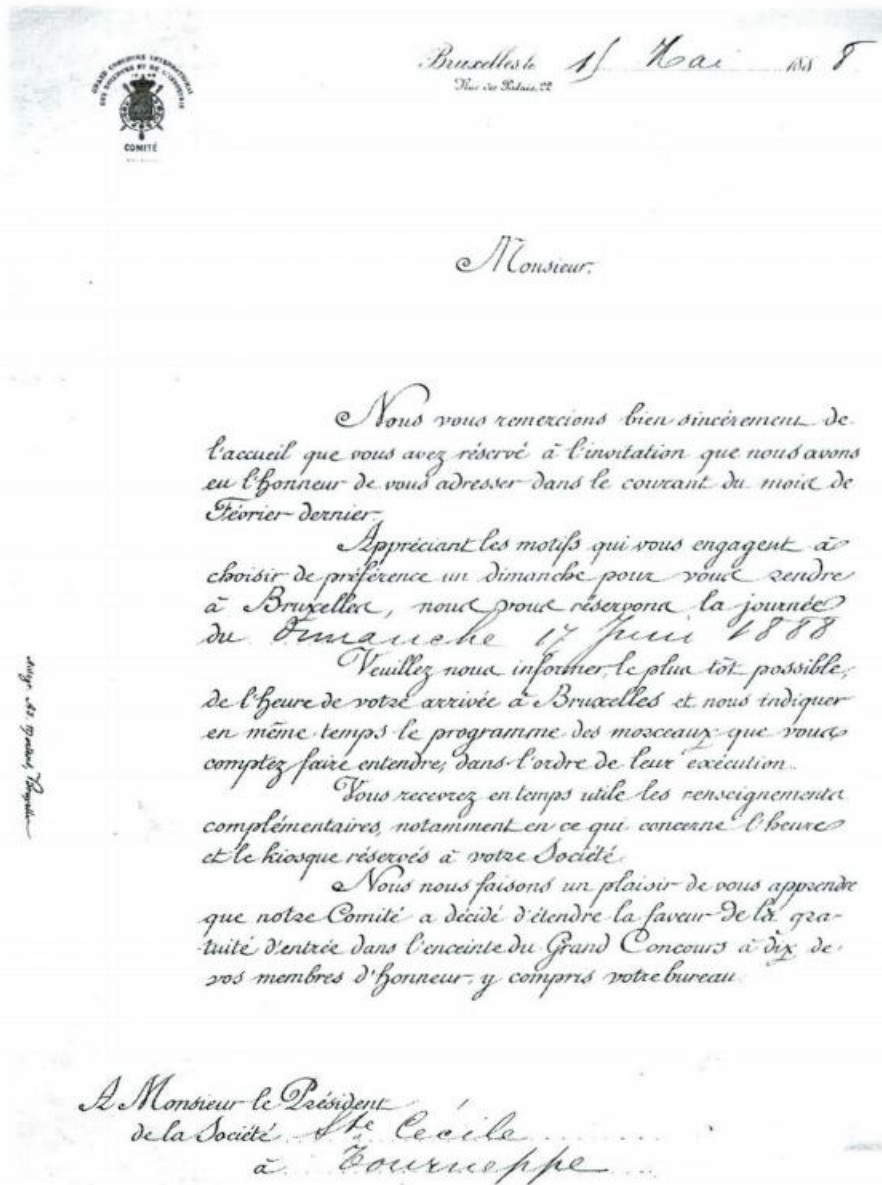 GRAND CONCOURS INTERNATIONAL
DES SCIENCES ET DE L'INDUSTRIE
COMITÉ
Bruxelles le 15 Mai 1888
Rue des Palais, 22
Monsieur.
Nous vous remercions bien sincèrement de
l'accueil que vous avez réservé à l'invitation que nous avons
eu l'honneur de vous adresser dans le courant du mois de
Février dernier.
Appréciant les motifs qui vous engagent à
choisir de préférence un dimanche pour vous rendre
à Bruxelles, nous vous réservons la journée
du Dimanche 17 Juin 1888
Veuillez nous informer, le plus tôt possible,
de l'heure de votre arrivée à Bruxelles et nous indiquer
en même temps le programme des morceaux que vous
comptez faire entendre, dans l'ordre de leur exécution.
Vous recevrez en temps utile les renseignements
complémentaires, notamment en ce qui concerne l'heure
et le kiosque réservés à votre Société.
Nous nous faisons un plaisir de vous apprendre
que notre Comité a décidé d'étendre la faveur de la gra-
tuité d'entrée dans l'enceinte du Grand Concours à dix de
vos membres d'honneur, y compris votre bureau.
A Monsieur le Président
de la Société Ste Cécile
à Tourneppe